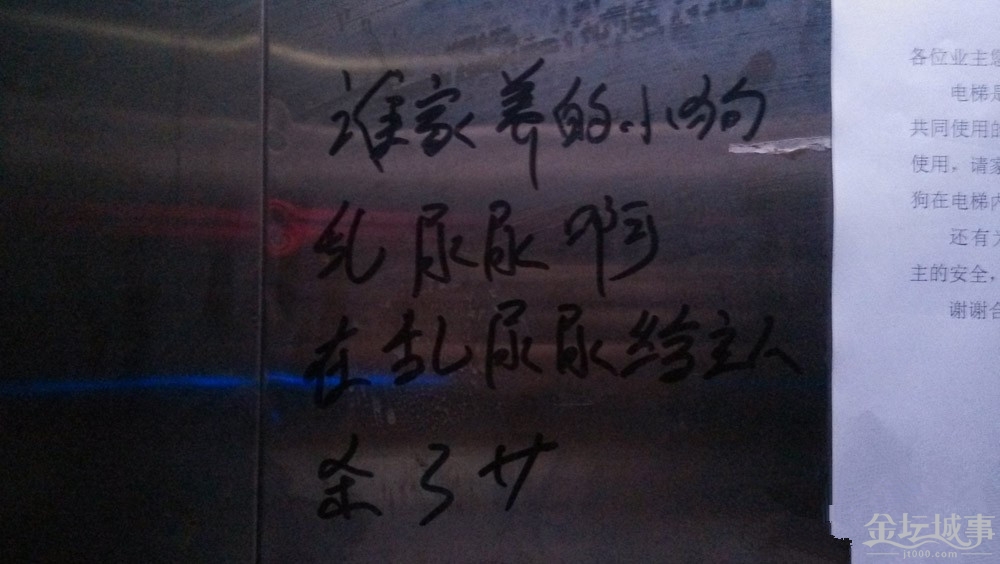 谁家养的小狗
乱尿尿啊
在乱尿尿给主人
杀了廿
各位业主您
电梯是
共同使用的
使用，请家
狗在电梯内
还有为
主的安全，
谢谢合
金坛城事
jt000.com